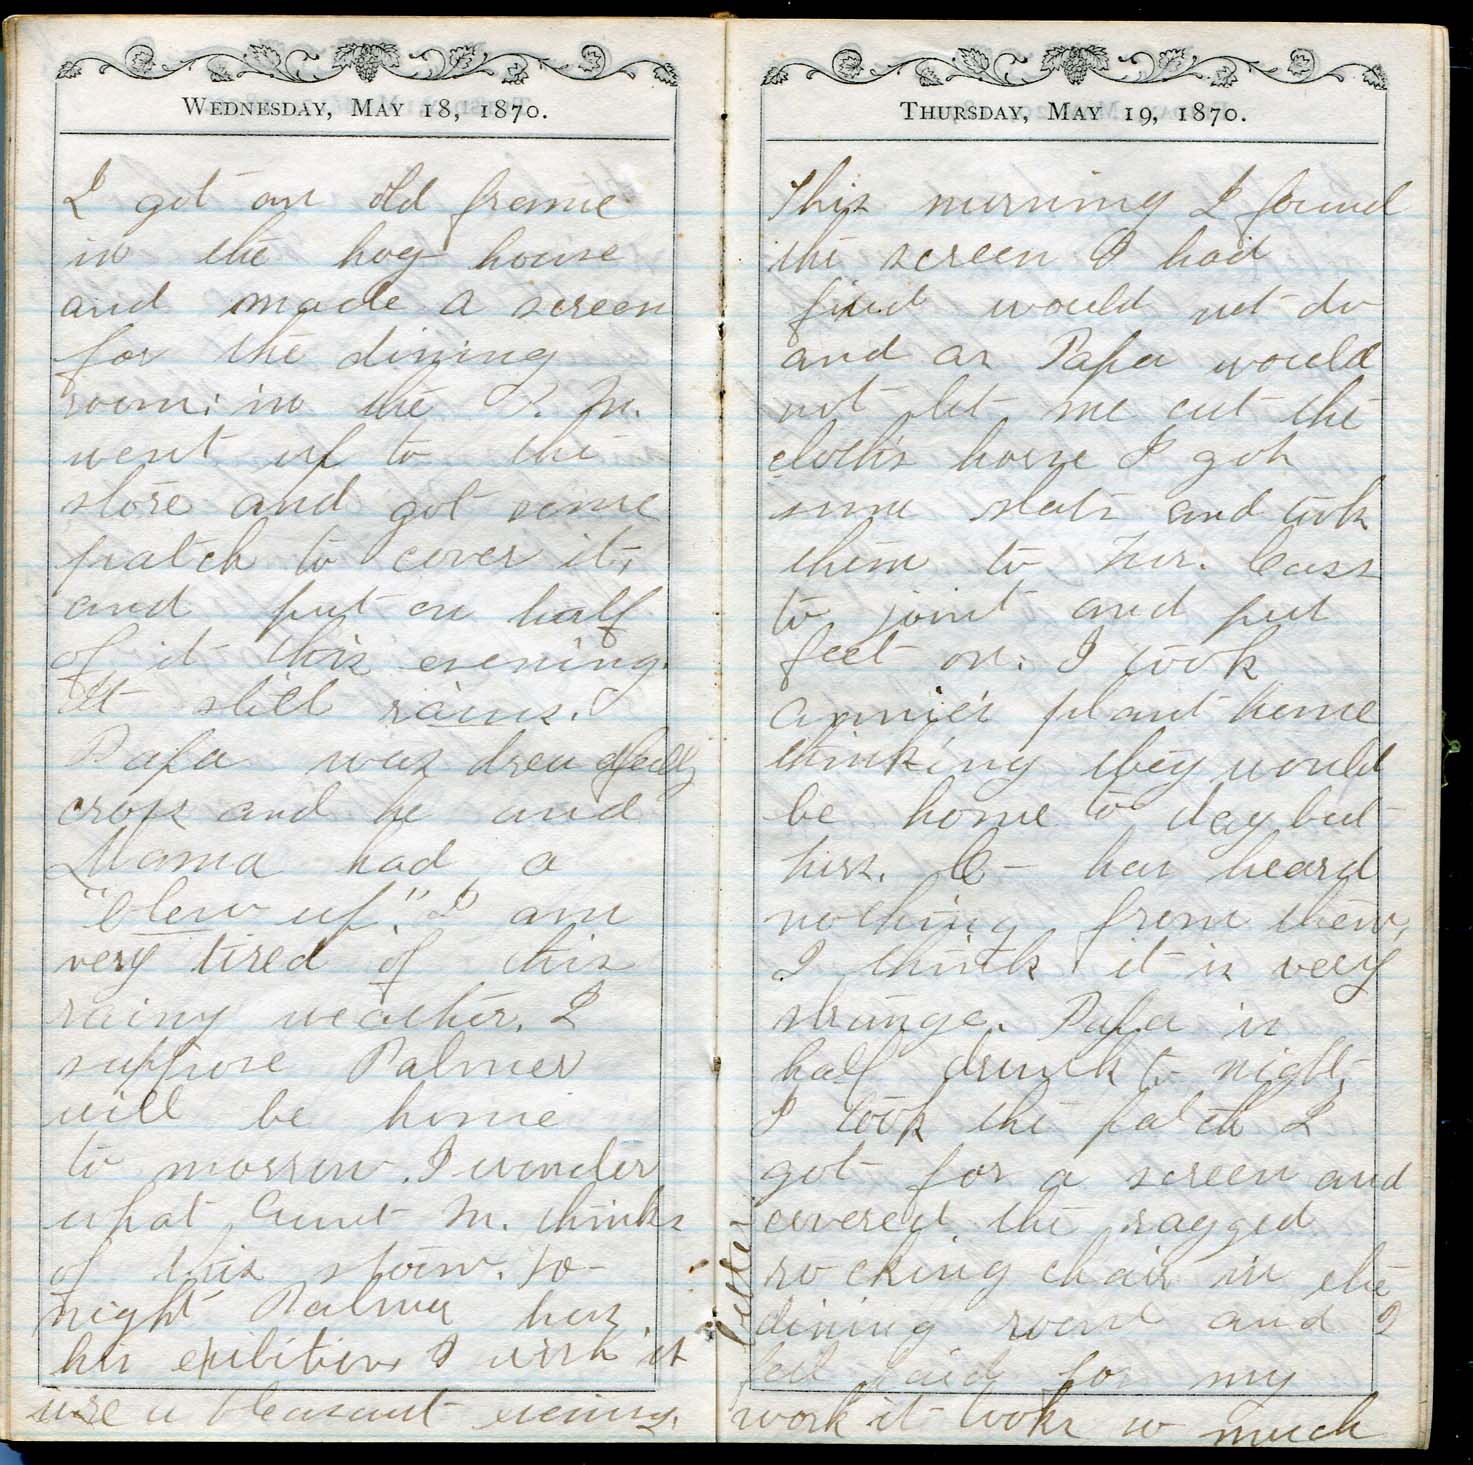 WEDNESDAY, MAY 18, 1870.
I got an old frame
in the hog house
and made a screen
for the dining
room; in the P. M.
went up to the
store and got some
patch to cover it,
and put on half
of it this evening.
It still rains.
Papa was dreadfully
cross and he and
Mama had a
"blew up." I am
very tired of this
rainy weather. I
suppose Palmer
will be home
to morrow. I wonder
what Aunt M. thinks
of this storm. To-
night Palmer has
his exibition I wish it
was a pleasant evening.
THURSDAY, MAY 19, 1870.
This morning I found
the screen I had
fixed would not do
and as Papa would
not let me cut the
cloths horse I got
some slats and took
them to Mr. Cass
to joint and put
feet on. I took
Annie's plant home
thinking they would
be home to day but
Mrs. C- has heard
nothing from them,
I think it is very
strange. Papa is
half drunk to night,
I took the patch I
got for a screen and
covered the ragged
rocking chair in the
dining room and I
feel paid for my
work it looks so much
better